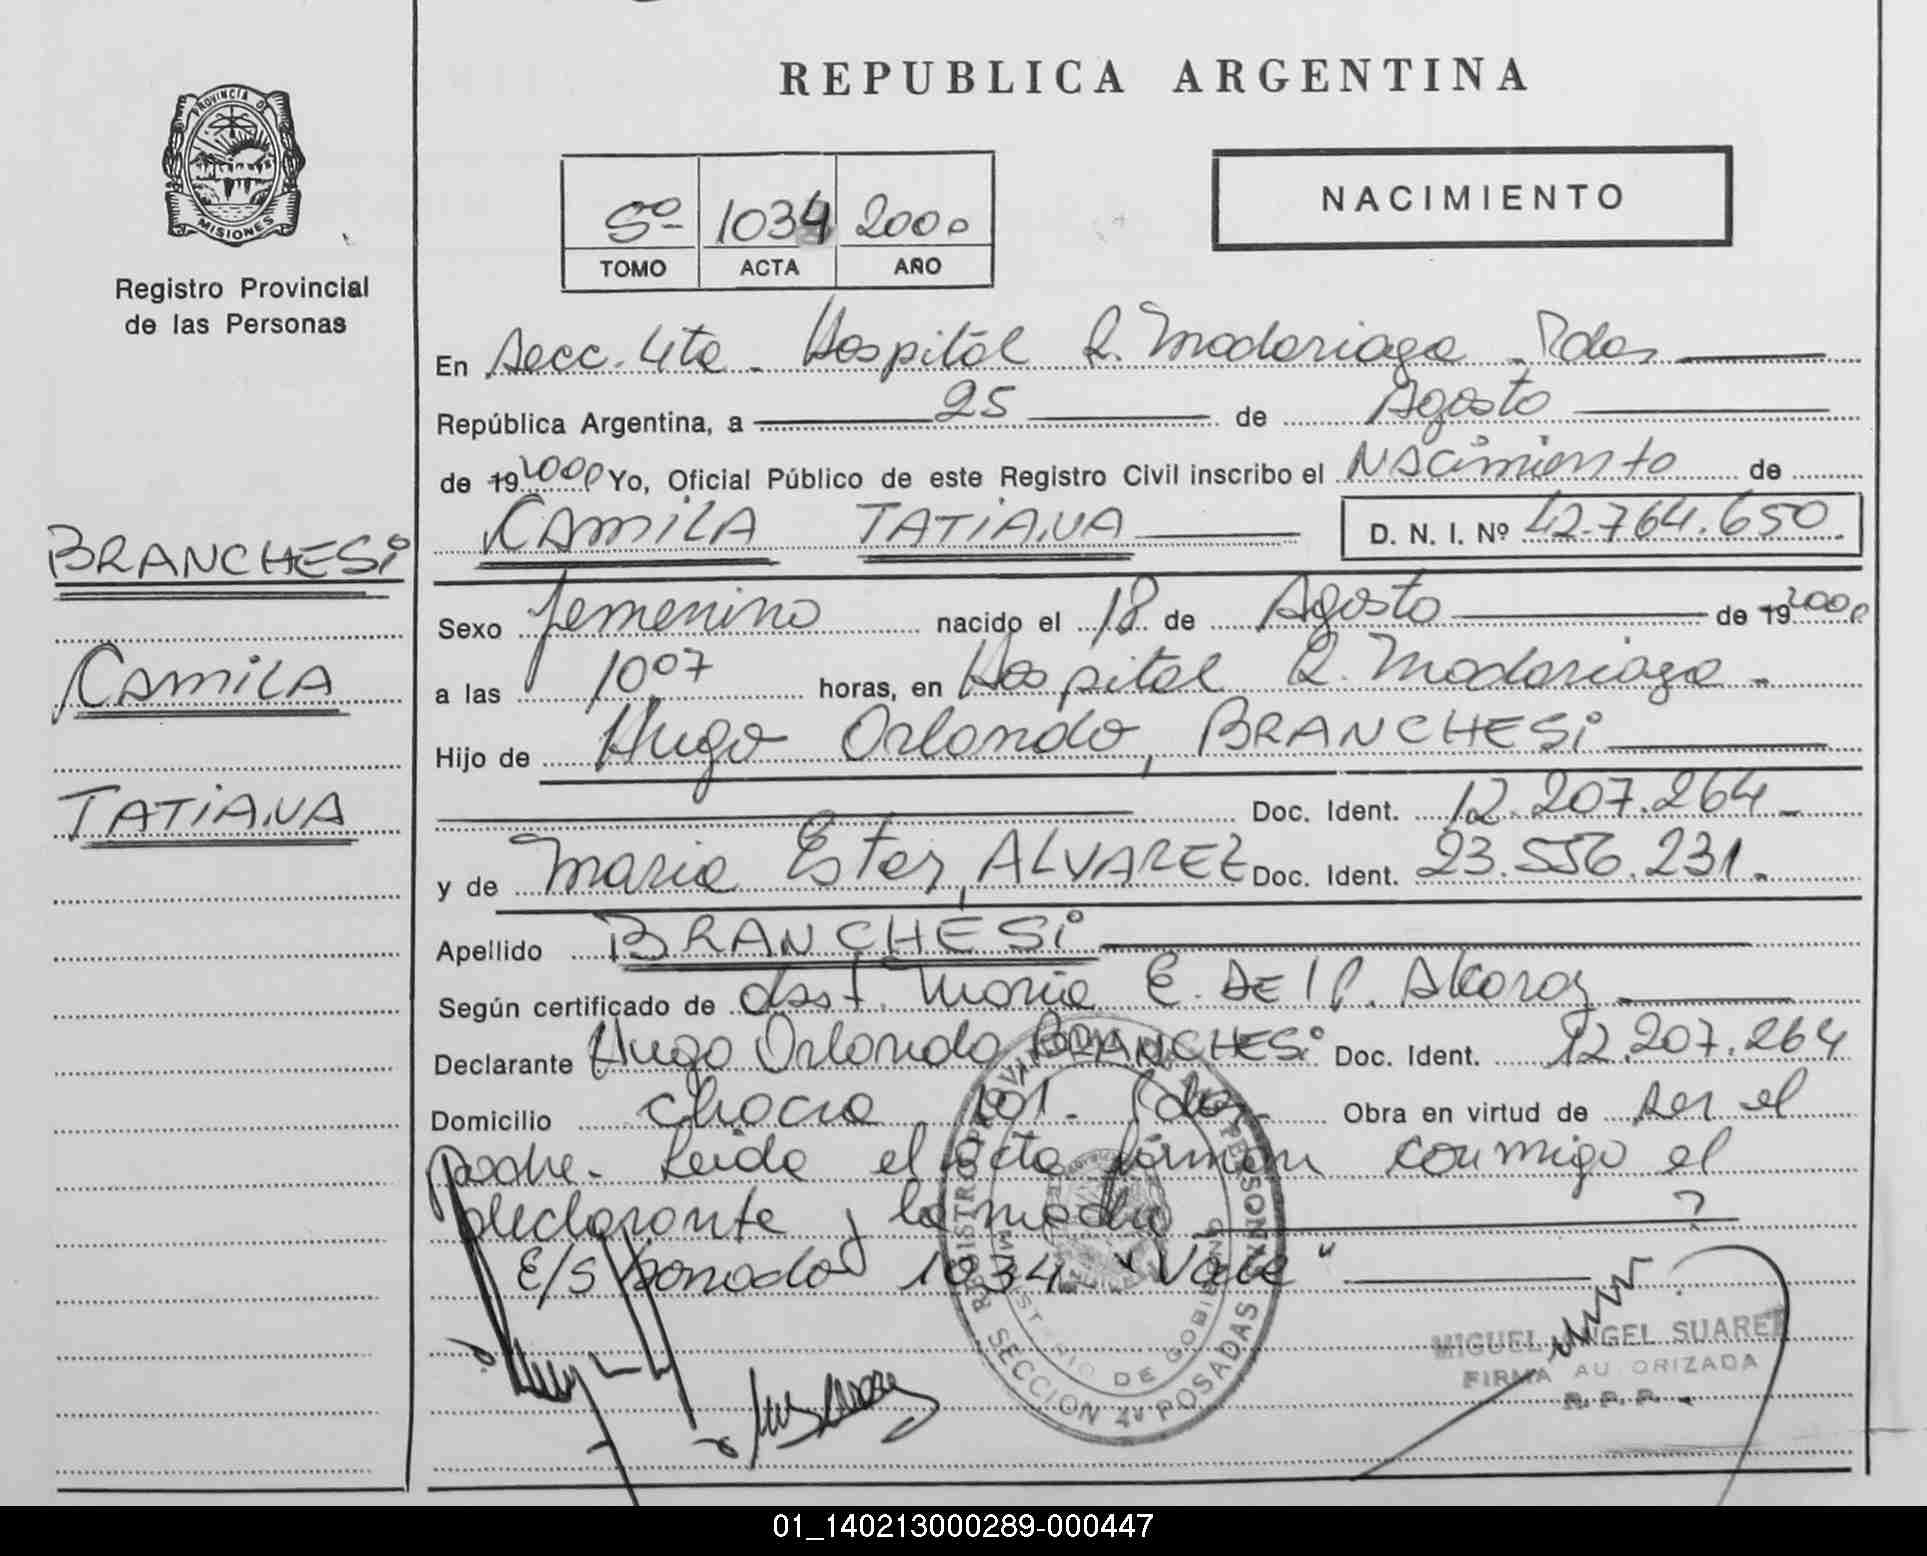 REPUBLICA ARGENTINA
PROVINCIA DE
MISIONES
Registro Provincial
de las Personas
5º 1034 2000
TOMO ACTA AÑO
NACIMIENTO
En Secc. 4ta. Hospital R. Madariaga. Pdas
República Argentina, a 25 de Agosto
de 19 2000 Yo, Oficial Público de este Registro Civil inscribo el Nacimiento de
CAMILA TATIANA D. N. I. Nº 42.764.650.
BRANCHESi
CAMILA
TATIANA
Sexo femenino nacido el 18 de Agosto de 19 2000
a las 10º7 horas, en Hospital R. Madariaga.
Hijo de Hugo Orlando, BRANCHESi
Doc. Ident. 12.207.264.
y de Maria Ester, ALVAREZ Doc. Ident. 23.556.231.
Apellido BRANCHESi
Según certificado de obst. Maria E.
Declarante Hugo Orlando BRANCHESi Doc. Ident. 12.207.264
Domicilio 101. Pdas. Obra en virtud de ser el
padre. Leida el acta firman conmigo el
declarante y la madre
E/S borrado 1034 "Vale"
REGISTRO PROVINCIAL DE LAS PERSONAS
MINISTERIO DE GOBIERNO
SECCION 4ª POSADAS
MIGUEL ANGEL SUAREZ
FIRMA AUTORIZADA
R.P.P.
01_140213000289-000447